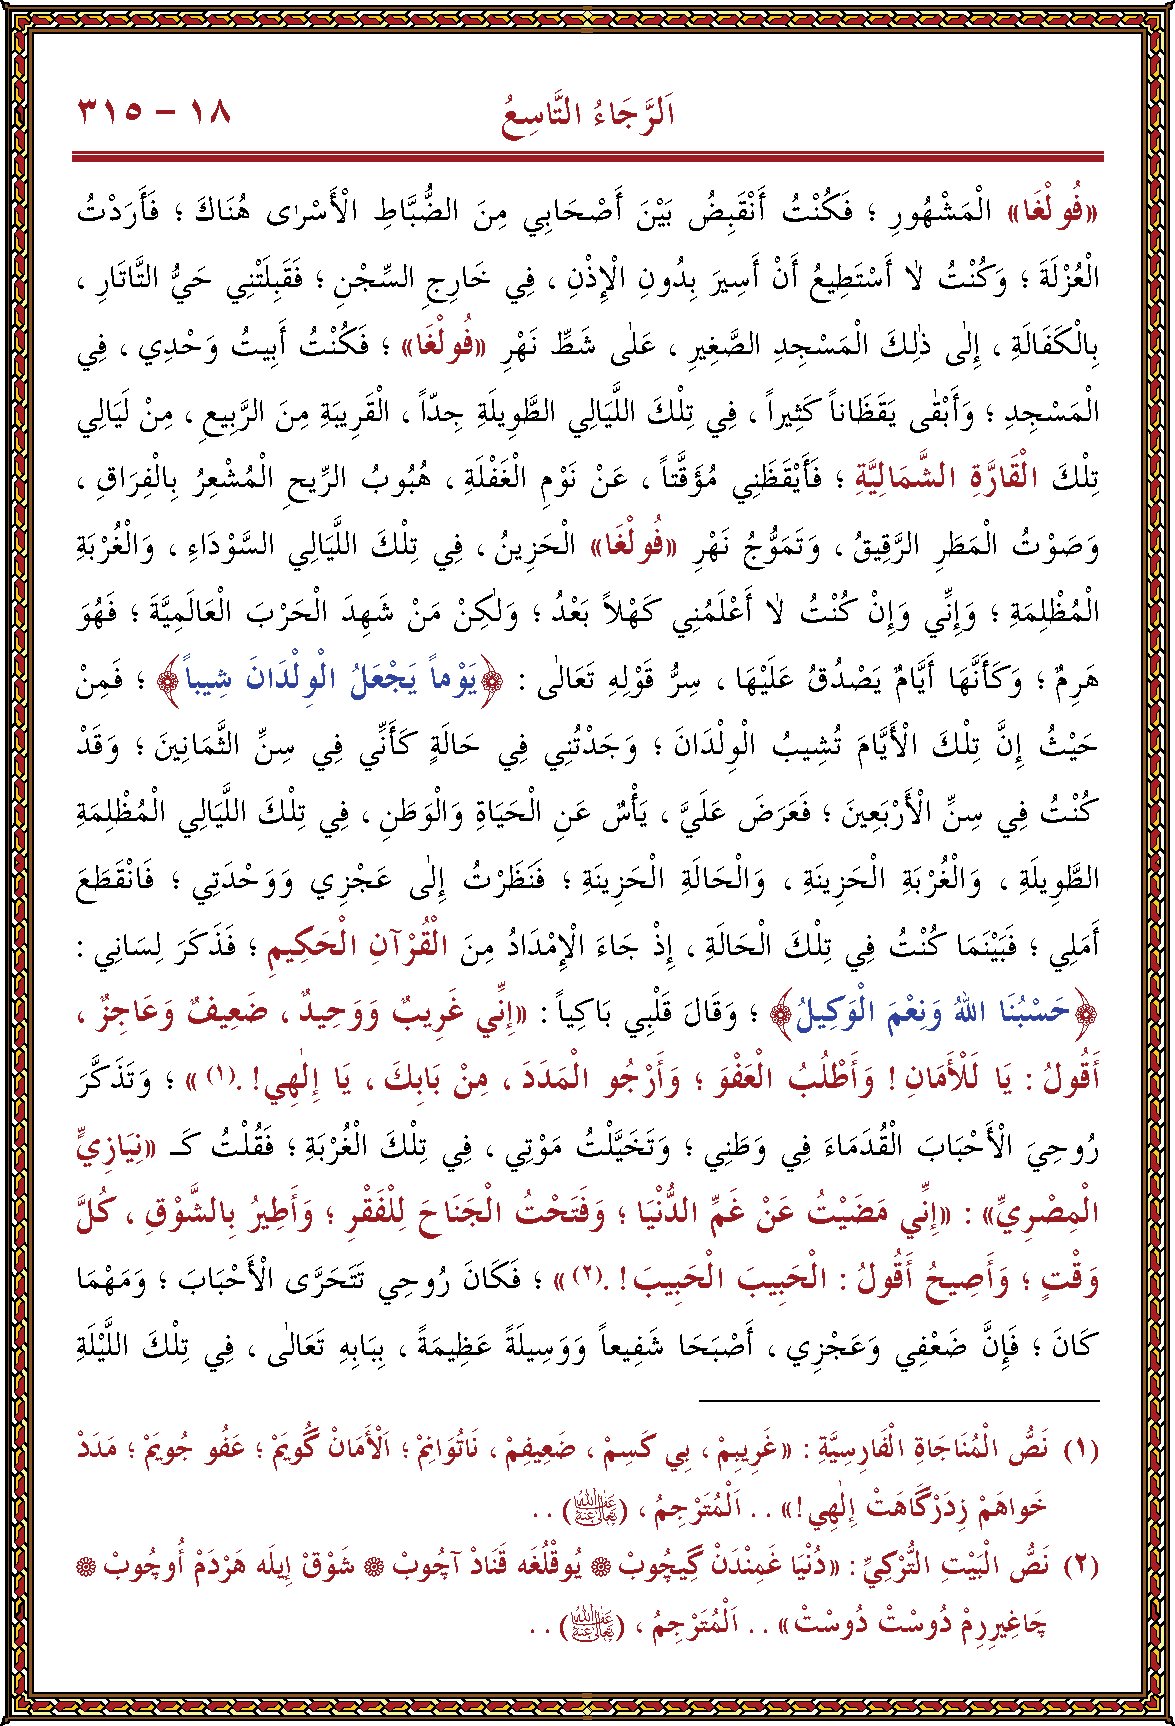 اَلرَّجَاءُ التَّاسِعُ ١٨ - ٣١٥
«فُولْغَا» الْمَشْهُورِ ؛ فَكُنْتُ أَنْقَبِضُ بَيْنَ أَصْحَابِي مِنَ الضُّبَّاطِ الْأَسْرٰى هُنَاكَ ؛ فَأَرَدْتُ
الْعُزْلَةَ ؛ وَكُنْتُ لَا أَسْتَطِيعُ أَنْ أَسِيرَ بِدُونِ الْإِذْنِ ، فِي خَارِجِ السِّجْنِ ؛ فَقَبِلَتْنِي حَيُّ التَّاتَارِ ،
بِالْكَفَالَةِ ، إِلٰى ذٰلِكَ الْمَسْجِدِ الصَّغِيرِ ، عَلٰى شَطِّ نَهْرِ «فُولْغَا» ؛ فَكُنْتُ أَبِيتُ وَحْدِي ، فِي
الْمَسْجِدِ ؛ وَأَبْقٰى يَقَظَاناً كَثِيراً ، فِي تِلْكَ اللَّيَالِي الطَّوِيلَةِ جِدّاً ، الْقَرِيبَةِ مِنَ الرَّبِيعِ ، مِنْ لَيَالِي
تِلْكَ الْقَارَّةِ الشَّمَالِيَّةِ ؛ فَأَيْقَظَنِي مُؤَقَّتاً ، عَنْ نَوْمِ الْغَفْلَةِ ، هُبُوبُ الرِّيحِ الْمُشْعِرُ بِالْفِرَاقِ ،
وَصَوْتُ الْمَطَرِ الرَّقِيقُ ، وَتَمَوُّجُ نَهْرِ «فُولْغَا» الْحَزِينُ ، فِي تِلْكَ اللَّيَالِي السَّوْدَاءِ ، وَالْغُرْبَةِ
الْمُظْلِمَةِ ؛ وَإِنِّي وَإِنْ كُنْتُ لَا أَعْلَمُنِي كَهْلاً بَعْدُ ؛ وَلٰكِنْ مَنْ شَهِدَ الْحَرْبَ الْعَالَمِيَّةَ ؛ فَهُوَ
هَرِمٌ ؛ وَكَأَنَّهَا أَيَّامٌ يَصْدُقُ عَلَيْهَا ، سِرُّ قَوْلِهِ تَعَالٰى : ﴿يَوْماً يَجْعَلُ الْوِلْدَانَ شِيباً﴾ ؛ فَمِنْ
حَيْثُ إِنَّ تِلْكَ الْأَيَّامَ تُشِيبُ الْوِلْدَانَ ؛ وَجَدْتُنِي فِي حَالَةٍ كَأَنِّي فِي سِنِّ الثَّمَانِينَ ؛ وَقَدْ
كُنْتُ فِي سِنِّ الْأَرْبَعِينَ ؛ فَعَرَضَ عَلَيَّ ، يَأْسٌ عَنِ الْحَيَاةِ وَالْوَطَنِ ، فِي تِلْكَ اللَّيَالِي الْمُظْلِمَةِ
الطَّوِيلَةِ ، وَالْغُرْبَةِ الْحَزِينَةِ ، وَالْحَالَةِ الْحَزِينَةِ ؛ فَنَظَرْتُ إِلٰى عَجْزِي وَوَحْدَتِي ؛ فَانْقَطَعَ
أَمَلِي ؛ فَبَيْنَمَا كُنْتُ فِي تِلْكَ الْحَالَةِ ، إِذْ جَاءَ الْإِمْدَادُ مِنَ الْقُرْآنِ الْحَكِيمِ ؛ فَذَكَرَ لِسَانِي :
﴿حَسْبُنَا اللهُ وَنِعْمَ الْوَكِيلُ﴾ ؛ وَقَالَ قَلْبِي بَاكِياً : «إِنِّي غَرِيبٌ وَوَحِيدٌ ، ضَعِيفٌ وَعَاجِزٌ ،
أَقُولُ : يَا لَلْأَمَانِ ! وَأَطْلُبُ الْعَفْوَ ؛ وَأَرْجُو الْمَدَدَ ، مِنْ بَابِكَ ، يَا إِلٰهِي! .(١) » ؛ وَتَذَكَّرَ
رُوحِيَ الْأَحْبَابَ الْقُدَمَاءَ فِي وَطَنِي ؛ وَتَخَيَّلْتُ مَوْتِي ، فِي تِلْكَ الْغُرْبَةِ ؛ فَقُلْتُ كَـ «نِيَازِيٍّ
الْمِصْرِيِّ» : «إِنِّي مَضَيْتُ عَنْ غَمِّ الدُّنْيَا ؛ وَفَتَحْتُ الْجَنَاحَ لِلْفَقْرِ ؛ وَأَطِيرُ بِالشَّوْقِ ، كُلَّ
وَقْتٍ ؛ وَأَصِيحُ أَقُولُ : الْحَبِيبَ الْحَبِيبَ ! .(٢) » ؛ فَكَانَ رُوحِي تَتَحَرَّى الْأَحْبَابَ ؛ وَمَهْمَا
كَانَ ؛ فَإِنَّ ضَعْفِي وَعَجْزِي ، أَصْبَحَا شَفِيعاً وَوَسِيلَةً عَظِيمَةً ، بِبَابِهِ تَعَالٰى ، فِي تِلْكَ اللَّيْلَةِ
(١) نَصُّ الْمُنَاجَاةِ الْفَارِسِيَّةِ : «غَرِيبِمْ ، بِي كَسِمْ ، ضَعِيفِمْ ، نَاتُوَانِمْ ؛ اَلْأَمَانْ گُويَمْ ؛ عَفُو جُويَمْ ؛ مَدَدْ
خَواهَمْ زِدَرْگَاهَتْ إِلٰهِي!» . . اَلْمُتَرْجِمُ ، (ﷺ) . .
(٢) نَصُّ الْبَيْتِ التُّرْكِيِّ : «دُنْيَا غَمِنْدَنْ گِيچُوبْ ۞ يُوقْلُغَه قَنَادْ آچُوبْ ۞ شَوْقْ إِيلَه هَرْدَمْ أُوچُوبْ ۞
چَاغِيرِرِمْ دُوسْتْ دُوسْتْ» . . اَلْمُتَرْجِمُ ، (ﷺ) . .